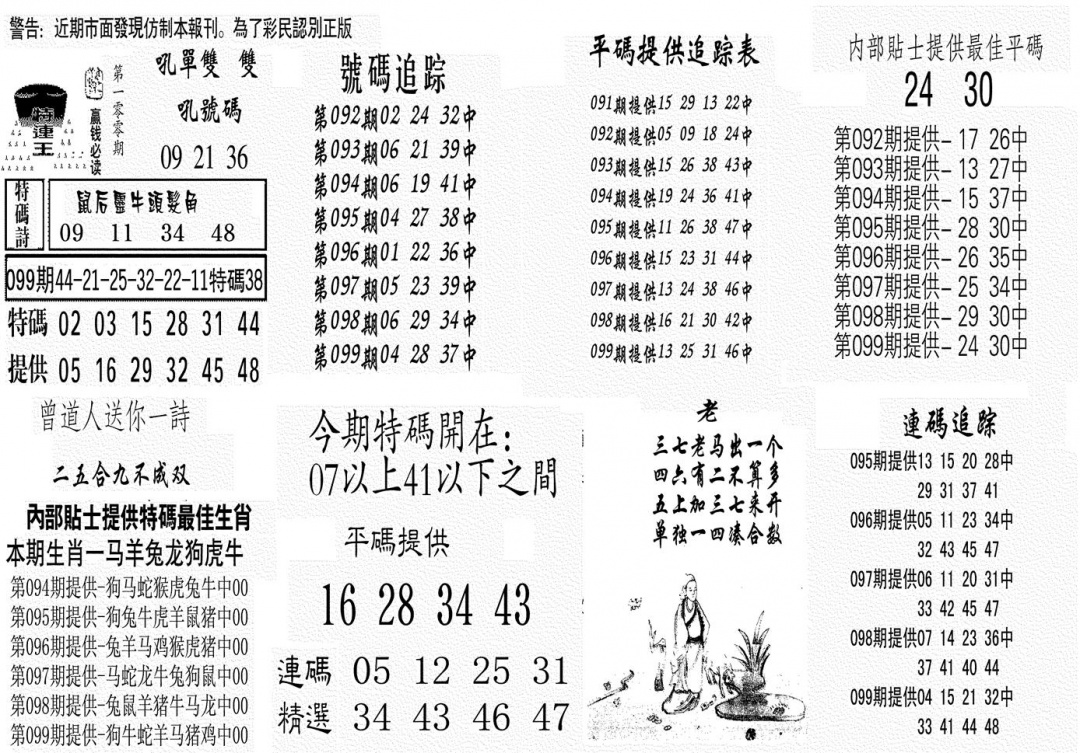 警告: 近期市面發現仿制本報刊。為了彩民認別正版
特連王
贏钱必读
第一零零期
吼單雙 雙
吼號碼
09 21 36
特碼詩
鼠后靈牛頭髮角
09 11 34 48
099期44-21-25-32-22-11特碼38
特碼 02 03 15 28 31 44
提供 05 16 29 32 45 48
號碼追踪
第092期02 24 32中
第093期06 21 39中
第094期06 19 41中
第095期04 27 38中
第096期01 22 36中
第097期05 23 39中
第098期06 29 34中
第099期04 28 37中
平碼提供追踪表
091期提供15 29 13 22中
092期提供05 09 18 24中
093期提供15 26 38 43中
094期提供19 24 36 41中
095期提供11 26 38 47中
096期提供15 23 31 44中
097期提供13 24 38 46中
098期提供16 21 30 42中
099期提供13 25 31 46中
内部貼士提供最佳平碼
24 30
第092期提供- 17 26中
第093期提供- 13 27中
第094期提供- 15 37中
第095期提供- 28 30中
第096期提供- 26 35中
第097期提供- 25 34中
第098期提供- 29 30中
第099期提供- 24 30中
曾道人送你一詩
二五合九不成双
內部貼士提供特碼最佳生肖
本期生肖一马羊兔龙狗虎牛
第094期提供-狗马蛇猴虎兔牛中00
第095期提供-狗兔牛虎羊鼠猪中00
第096期提供-兔羊马鸡猴虎猪中00
第097期提供-马蛇龙牛兔狗鼠中00
第098期提供-兔鼠羊猪牛马龙中00
第099期提供-狗牛蛇羊马猪鸡中00
今期特碼開在:
07以上41以下之間
平碼提供
16 28 34 43
連碼 05 12 25 31
精選 34 43 46 47
老
三七老马出一个
四六有二不算多
五上加三七来开
单独一四凑合数
連碼追踪
095期提供13 15 20 28中
29 31 37 41
096期提供05 11 23 34中
32 43 45 47
097期提供06 11 20 31中
33 42 45 47
098期提供07 14 23 36中
37 41 40 44
099期提供04 15 21 32中
33 41 44 48